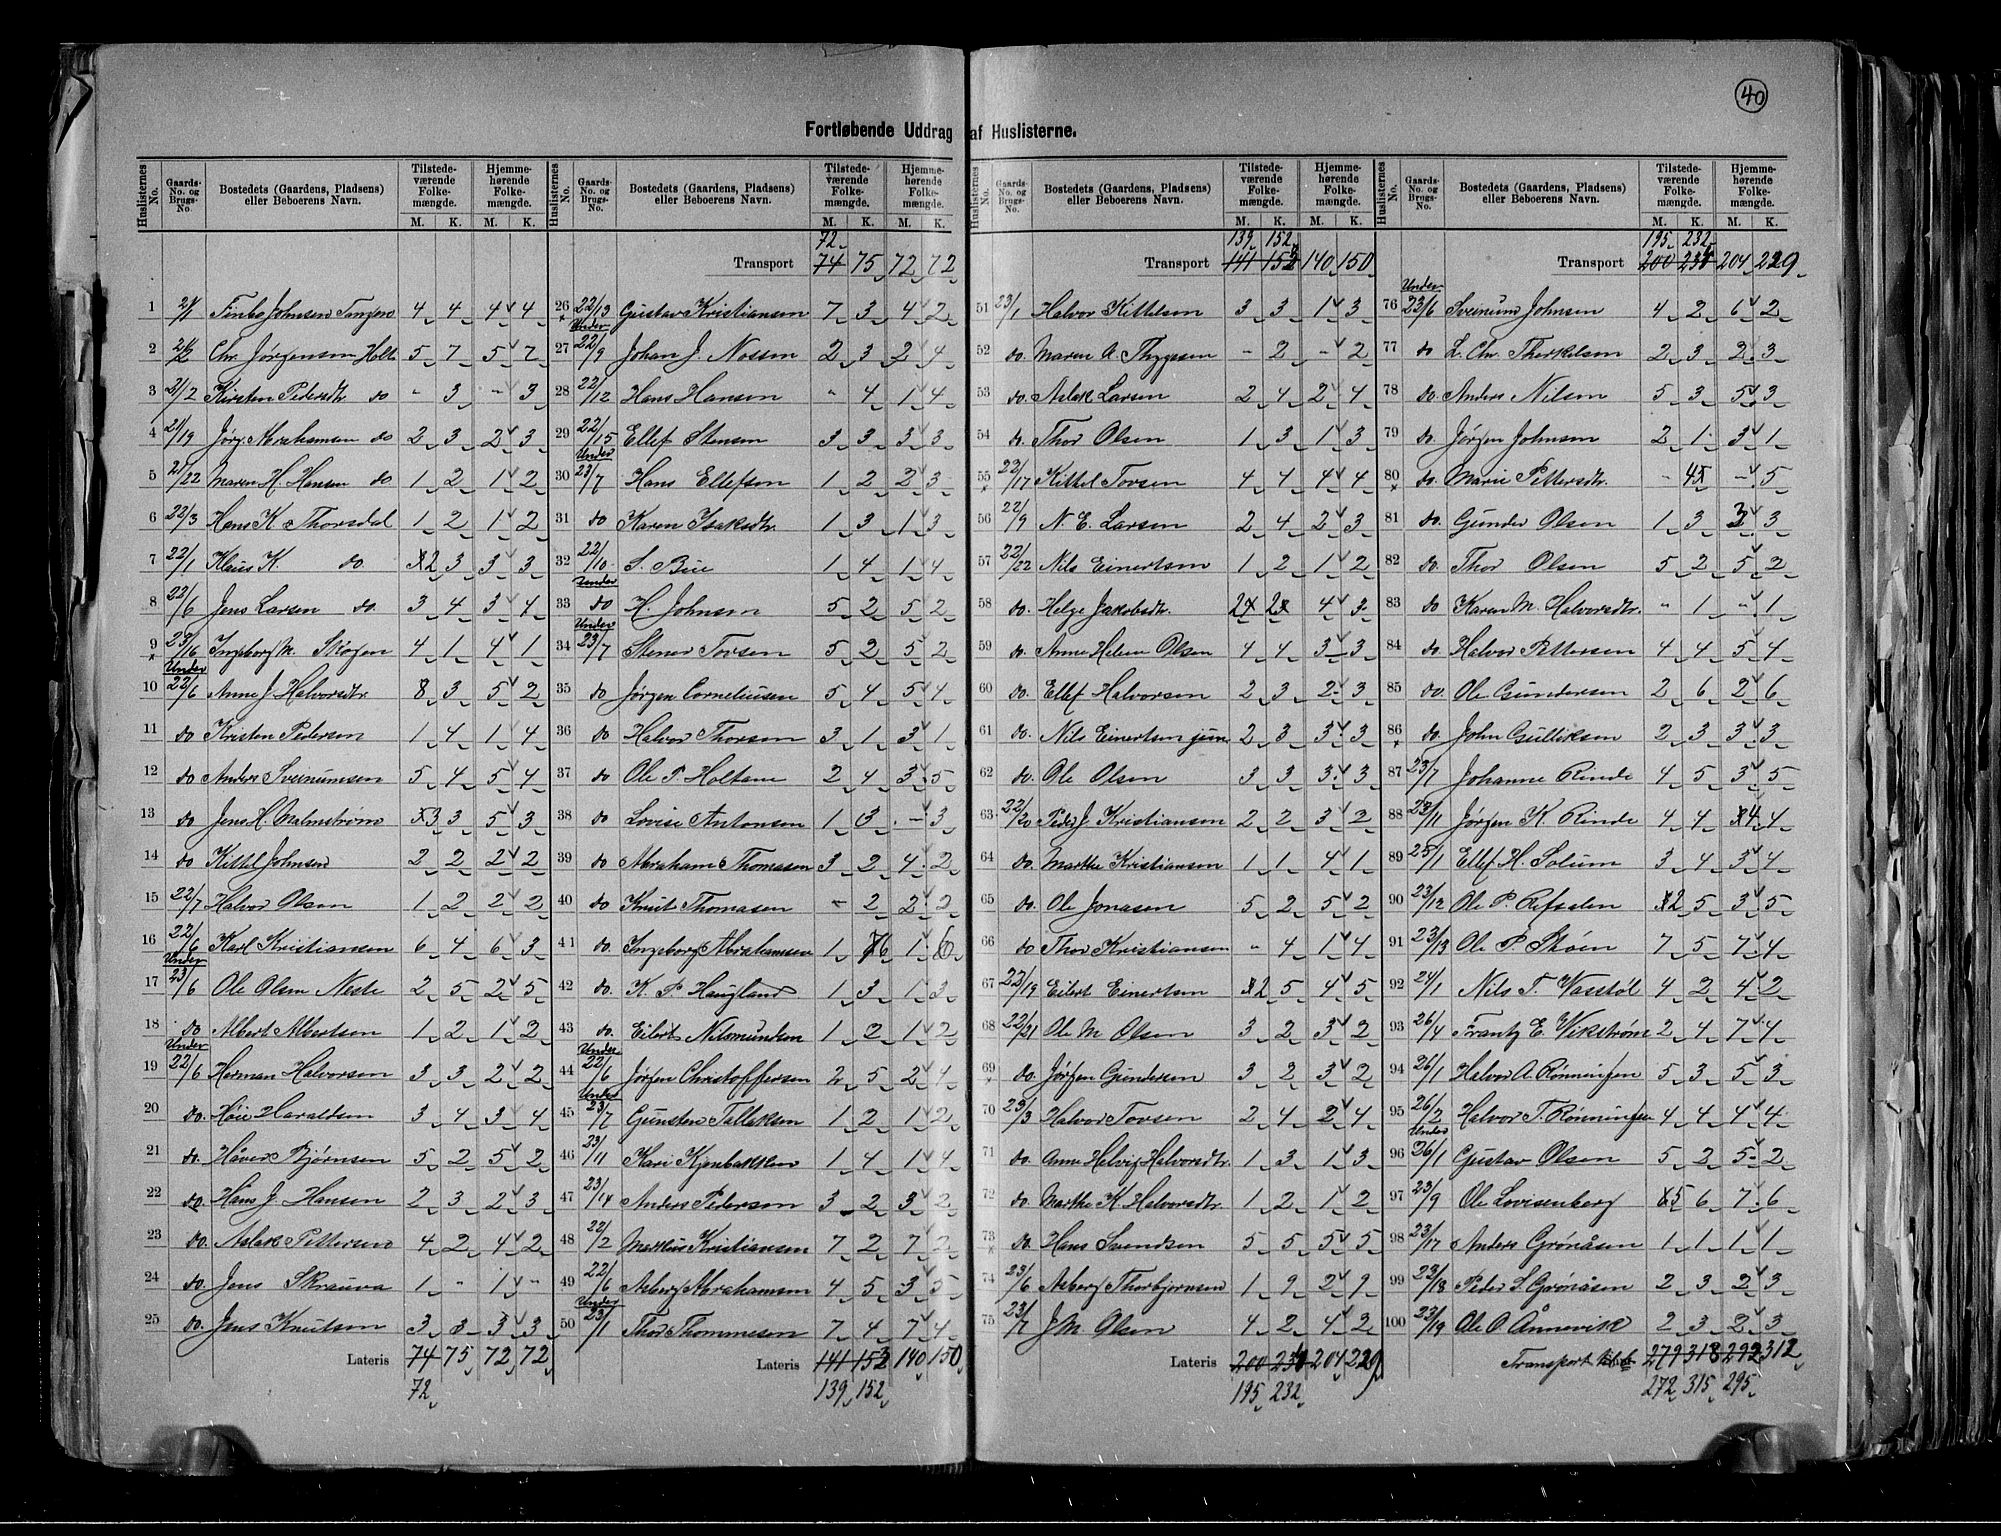 40
Fortløbende Uddrag af Huslisterne.
Huslisternes No. Gaards-No. og Brugs-No. Bostedets (Gaardens, Pladsens) eller Beboerens Navn. Tilstede-værende Folke-mængde. Hjemme-hørende Folke-mængde.
M. K. M. K.
1 21/1 Tinbo Johnsen 4 4 4 4
2 21/2 Chr. Jørgensen Holte 5 7 5 7
3 21/2 Kirsten Pedersdtr. do - 3 - 3
4 21/19 Jørg. Abrahamsen do 2 3 2 3
5 21/22 Maren H. Hansen do 1 2 1 2
6 22/3 Hans K. Thorsdal 1 2 1 2
7 22/1 Klaus K. do. 2 3 3 3
8 23/6 Jens Larsen do. 3 4 3 4
9 23/16 Ingeborg M. Skogen 4 1 4 1
10 Under 22/6 Anne J. Halvorsdtr. 8 3 5 2
11 do Kristen Pedersen 1 4 1 4
12 do Anders Sveinumsen 5 4 5 4
13 do Jens H. Malmstrøm 3 3 5 3
14 do Kittel Johnsen 2 2 2 2
15 22/7 Halvor Olsen 1 2 2 2
16 22/6 Karl Kristiansen 6 4 6 3
17 Under 23/6 Ole Olsen Neste 2 5 2 5
18 do. Albert Albertsen 1 2 1 2
19 Under 22/6 Herman Halvorsen 3 3 2 2
20 do. Haraldsen 3 4 3 4
21 do. Håver Bjørnsen 5 2 5 2
22 do. Hans J. Hansen 2 3 2 3
23 do. Aslak Pettersen 4 2 4 2
24 do. Jens Skrauva 1 - 1 -
25 do. Jens Knutsen 3 3 3 3
Lateris 74 75 72 72
72
72
Transport 74 75 72 72
26 22/13 Gustav Kristiansen 7 3 4 2
27 Under 22/9 Johan J. Nossen 2 3 2 4
28 22/12 Hans Hansen - 4 1 4
29 22/15 Ellef Stensen 3 3 3 3
30 Under 23/7 Hans Ellefsen 1 2 2 3
31 do Karen Isaksdtr. 1 3 1 3
32 22/10 S. Bue 1 4 1 4
33 Under do H. Johnsen 5 2 5 2
34 Under 23/7 Stener Tovsen 5 2 5 2
35 do Jørgen Corneliusen 5 4 5 4
36 do Halvor Thorsen 3 1 3 1
37 do Ole P. Holtane 2 4 3 5
38 do Lovise Antonsen 1 3 - 3
39 do Abraham Thomasen 3 2 4 2
40 do Knut Thomasen - 2 2 2
41 do. Ingeborg Abrahamsen 1 6 1 6
42 do. K. P. Haugland 1 3 1 3
43 do. Eilert Nilsmundsen 1 2 1 2
44 Under 22/6 Jørgen Christoffersen 2 5 2 4
45 Under 23/7 Gunsten Tallaksen 1 2 1 2
46 23/11 Kari Kjenbakken 1 4 1 4
47 23/14 Anders Pedersen 3 2 3 2
48 22/2 Markus Kristiansen 7 2 7 2
49 22/6 Asberg Abrahamsen 4 5 3 5
50 Under 23/1 Thor Thommesen 7 4 7 4
Lateris 141 153 140 150
139 152
Huslisternes No. Gaards-No. og Brugs-No. Bostedets (Gaardens, Pladsens) eller Beboerens Navn. Tilstede-værende Folke-mængde. Hjemme-hørende Folke-mængde.
M. K. M. K.
139 152
Transport 141 153 140 150
51 23/1 Halvor Kittelsen 3 3 1 3
52 do. Maren A. Thygesen - 2 - 2
53 do. Aslak Larsen 2 4 2 4
54 do. Thor Olsen 1 3 1 3
55 22/17 Kittel Tovsen 4 4 4 4
56 22/9 N. E. Larsen 2 4 2 3
57 22/22 Nils Einertsen 1 2 1 2
58 do. Helge Jakobsdtr. 2 2 4 3
59 do. Anne Helene Olsen 4 4 3 3
60 do. Ellef Halvorsen 2 3 2 3
61 do. Nils Einertsen jun. 2 3 3 3
62 do. Ole Olsen 3 3 3 3
63 22/20 Peder J. Kristiansen 2 2 3 2
64 do. Marthe Kristiansen 1 1 4 1
65 do. Ole Jonasen 5 2 5 2
66 do Thor Kristiansen - 4 1 4
67 22/19 Eilert Einertsen 2 5 4 5
68 22/21 Ole M. Olsen 3 2 3 2
69 do. Jørgen Gundersen 3 2 3 2
70 23/3 Halvor Tovsen 2 4 2 4
71 do. Anne Helvig Halvorsdtr. 1 3 1 3
72 do. Marthe K. Halvorsdtr. 1 2 1 2
73 do. Hans Svendsen 5 5 5 5
74 23/6 Asberg Thorbjørnsen 1 9 2 9
75 23/7 J. M. Olsen 4 2 4 2
Lateris 200 234 204 229
195 232
195 232
Transport 200 234 204 229
76 Under 23/6 Sveinund Johnsen 4 2 6 2
77 do L. Chr. Therkelsen 2 3 2 3
78 do Anders Nilsen 5 3 5 3
79 do. Jørgen Johnsen 2 1 3 1
80 do. Marie Pettersdtr. - 4 - 5
81 do. Gunder Olsen 1 3 3 3
82 do. Thor Olsen 5 2 5 2
83 do Karen M. Halvorsdtr. - 1 - 1
84 do Halvor Pettersen 4 4 5 4
85 do. Ole Gundersen 2 6 2 6
86 do. John Gulliksen 2 3 3 3
87 23/7 Johanne Rinde 4 5 3 5
88 23/11 Jørgen K. Rinde 4 4 4 4
89 25/1 Ellef H. Solum 3 4 3 4
90 23/12 Ole P. Refsalen 2 5 3 5
91 23/13 Ole P. Skøien 7 5 7 4
92 24/1 Nils T. Vasstøl 4 2 4 2
93 26/4 Frantz E. Vikstrøm 2 4 7 4
94 26/1 Halvor A. Rønningen 5 3 5 3
95 26/2 Halvor T. Rønningen 4 4 4 4
96 Under 26/1 Gustav Olsen 5 2 5 2
97 23/9 Ole Lovisenberg 5 6 7 6
98 23/17 Anders Grønåsen 1 1 1 1
99 23/18 Peder S. Grønåsen 2 3 2 3
100 23/19 Ole O. Ånnevik 2 3 2 3
Transport 279 318 292 312
272 315 295